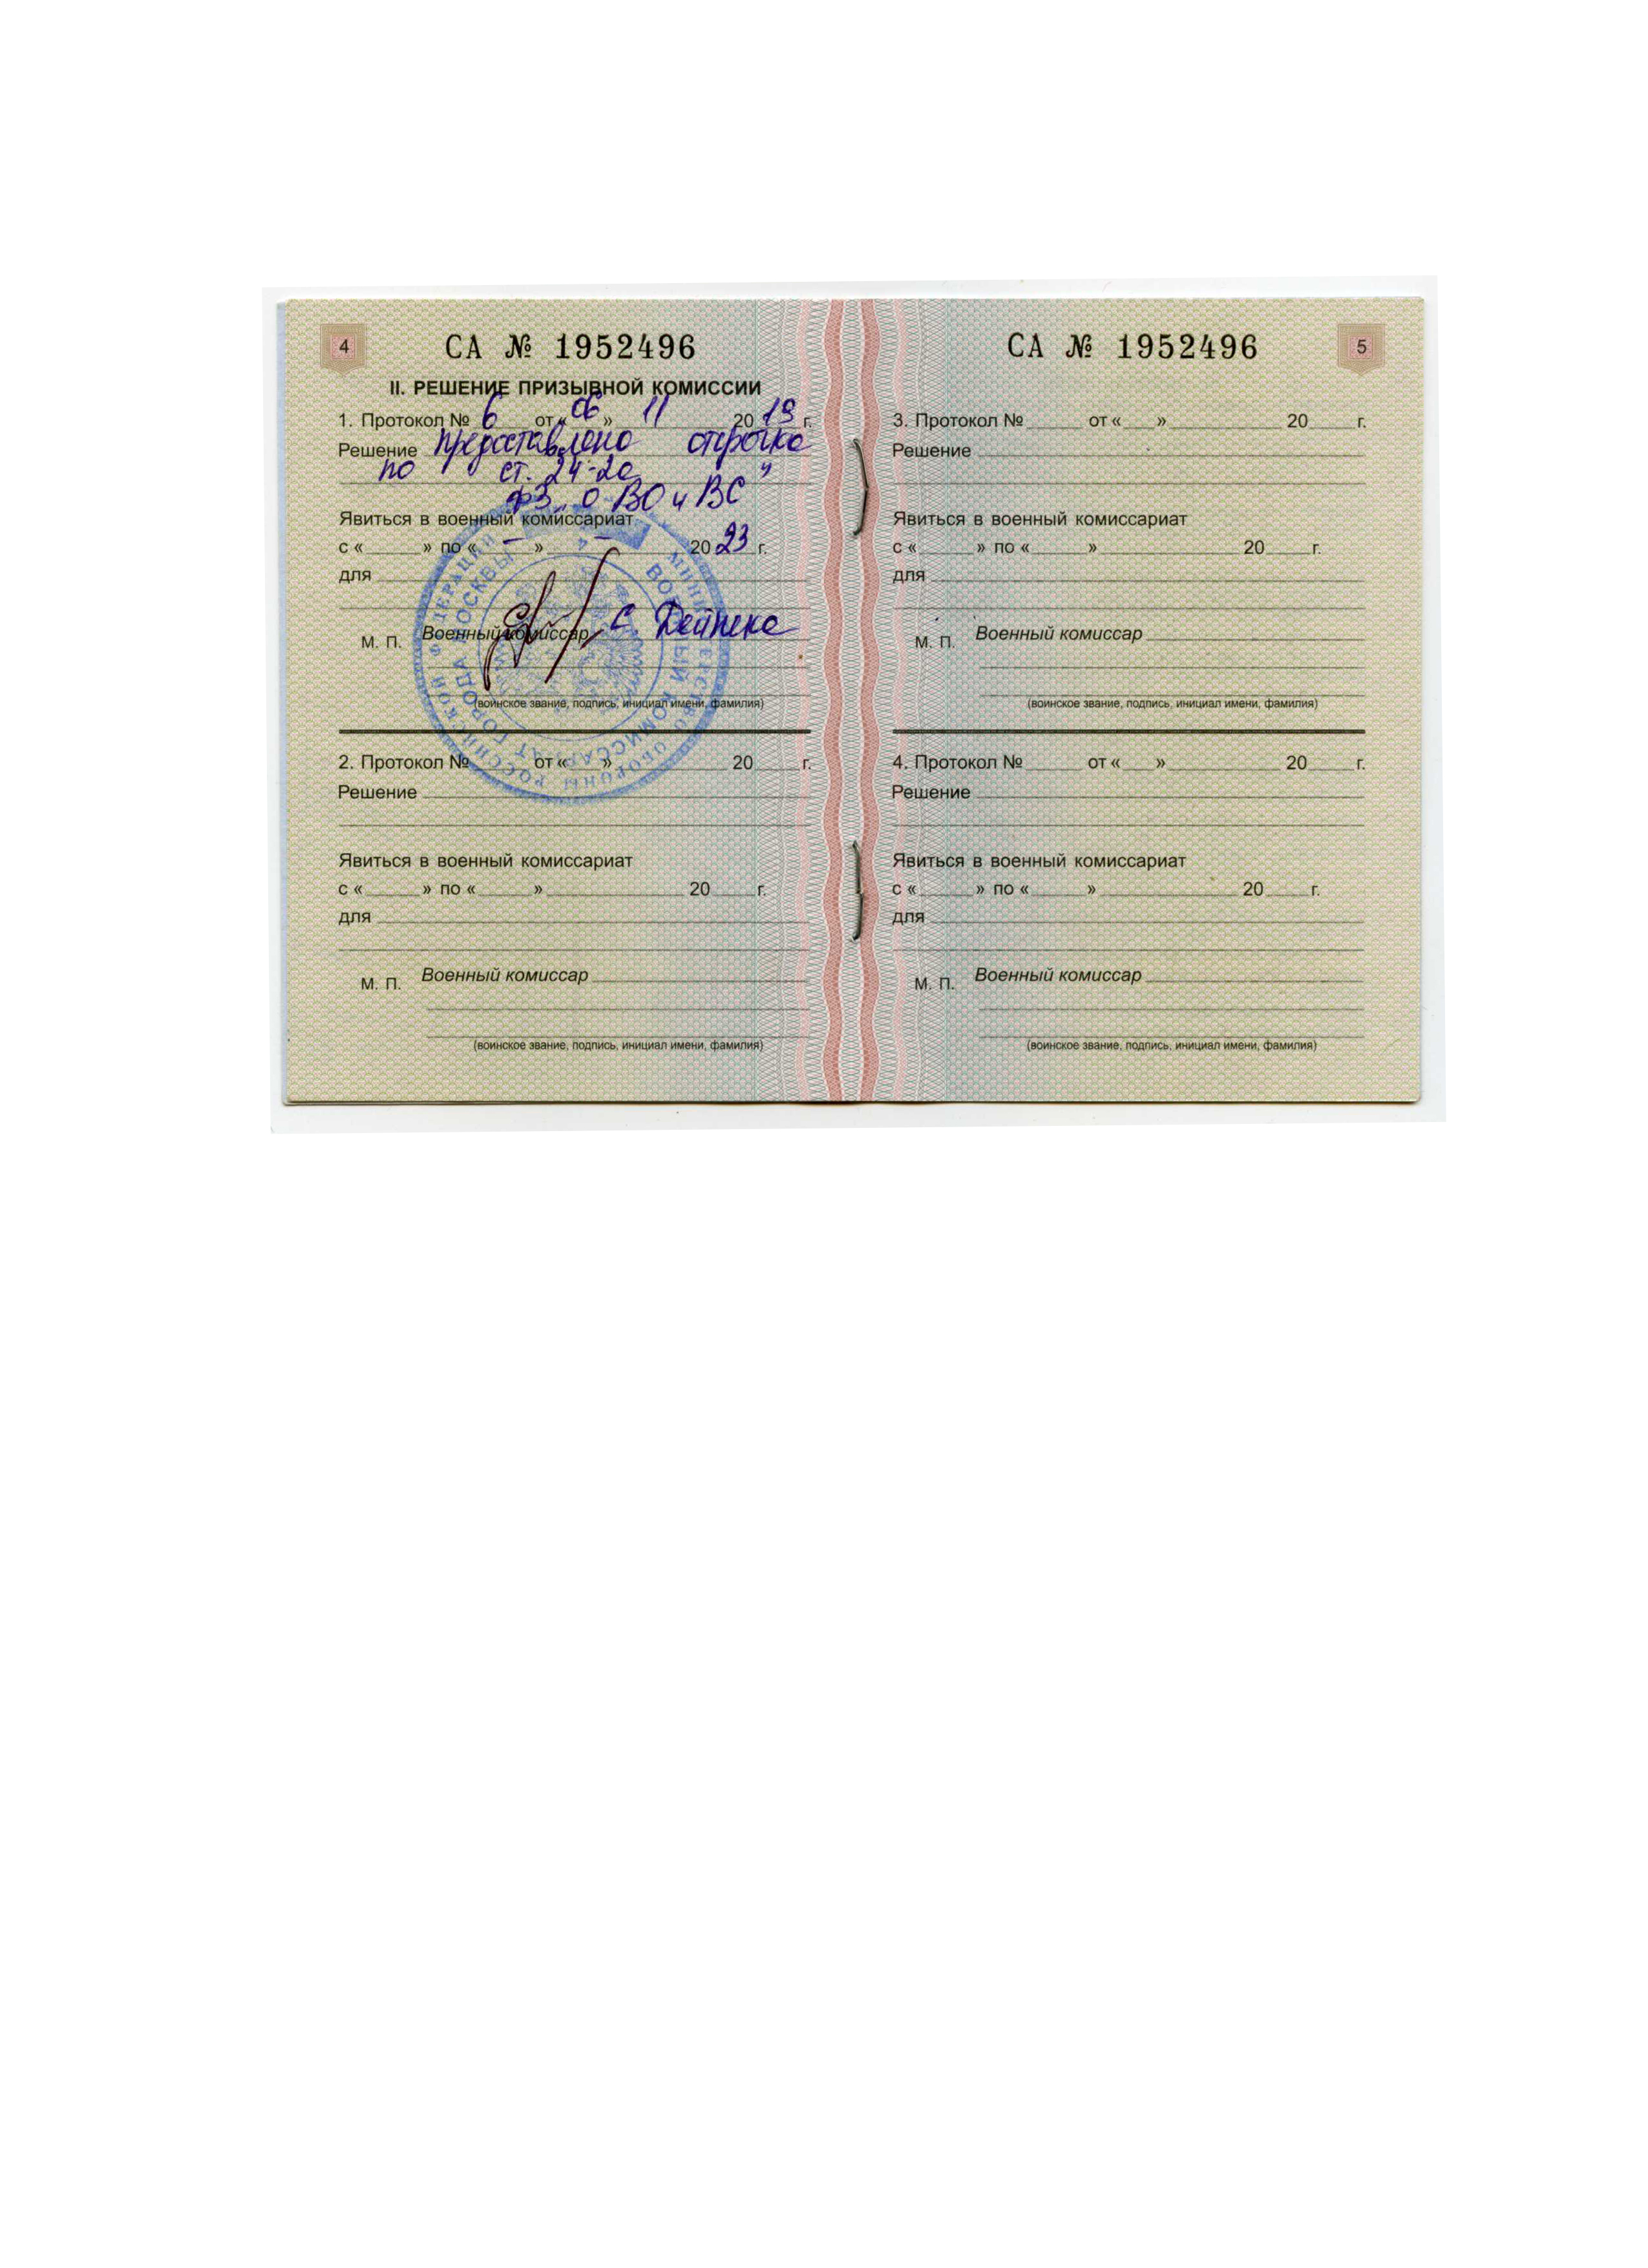 4
СА № 1952496
II. РЕШЕНИЕ ПРИЗЫВНОЙ КОМИССИИ
1. Протокол № 6 от « 06 » 11 20 19 г.
Решение предоставлено отсрочка
по ст. 24-2а
ФЗ „О ВО и ВС"
Явиться в военный комиссариат
с « » по « – » – 20 23 г.
для
М. П. Военный комиссар С. Дейнека
(воинское звание, подпись, инициал имени, фамилия)
МИНИСТЕРСТВО ОБОРОНЫ РОССИЙСКОЙ ФЕДЕРАЦИИ
ВОЕННЫЙ КОМИССАРИАТ ГОРОДА МОСКВЫ
2. Протокол № от « » 20 г.
Решение
Явиться в военный комиссариат
с « » по « » 20 г.
для
М. П. Военный комиссар
(воинское звание, подпись, инициал имени, фамилия)
СА № 1952496
5
3. Протокол № от « » 20 г.
Решение
Явиться в военный комиссариат
с « » по « » 20 г.
для
М. П. Военный комиссар
(воинское звание, подпись, инициал имени, фамилия)
4. Протокол № от « » 20 г.
Решение
Явиться в военный комиссариат
с « » по « » 20 г.
для
М. П. Военный комиссар
(воинское звание, подпись, инициал имени, фамилия)